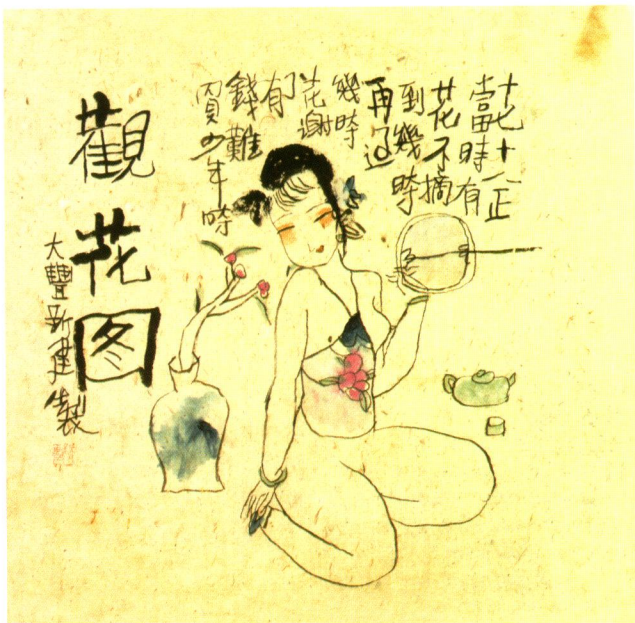 十七十八正
當時有
花不摘
到幾時
再過
幾時
花謝
了有
錢難
買少年時
觀花图
大豐新建製